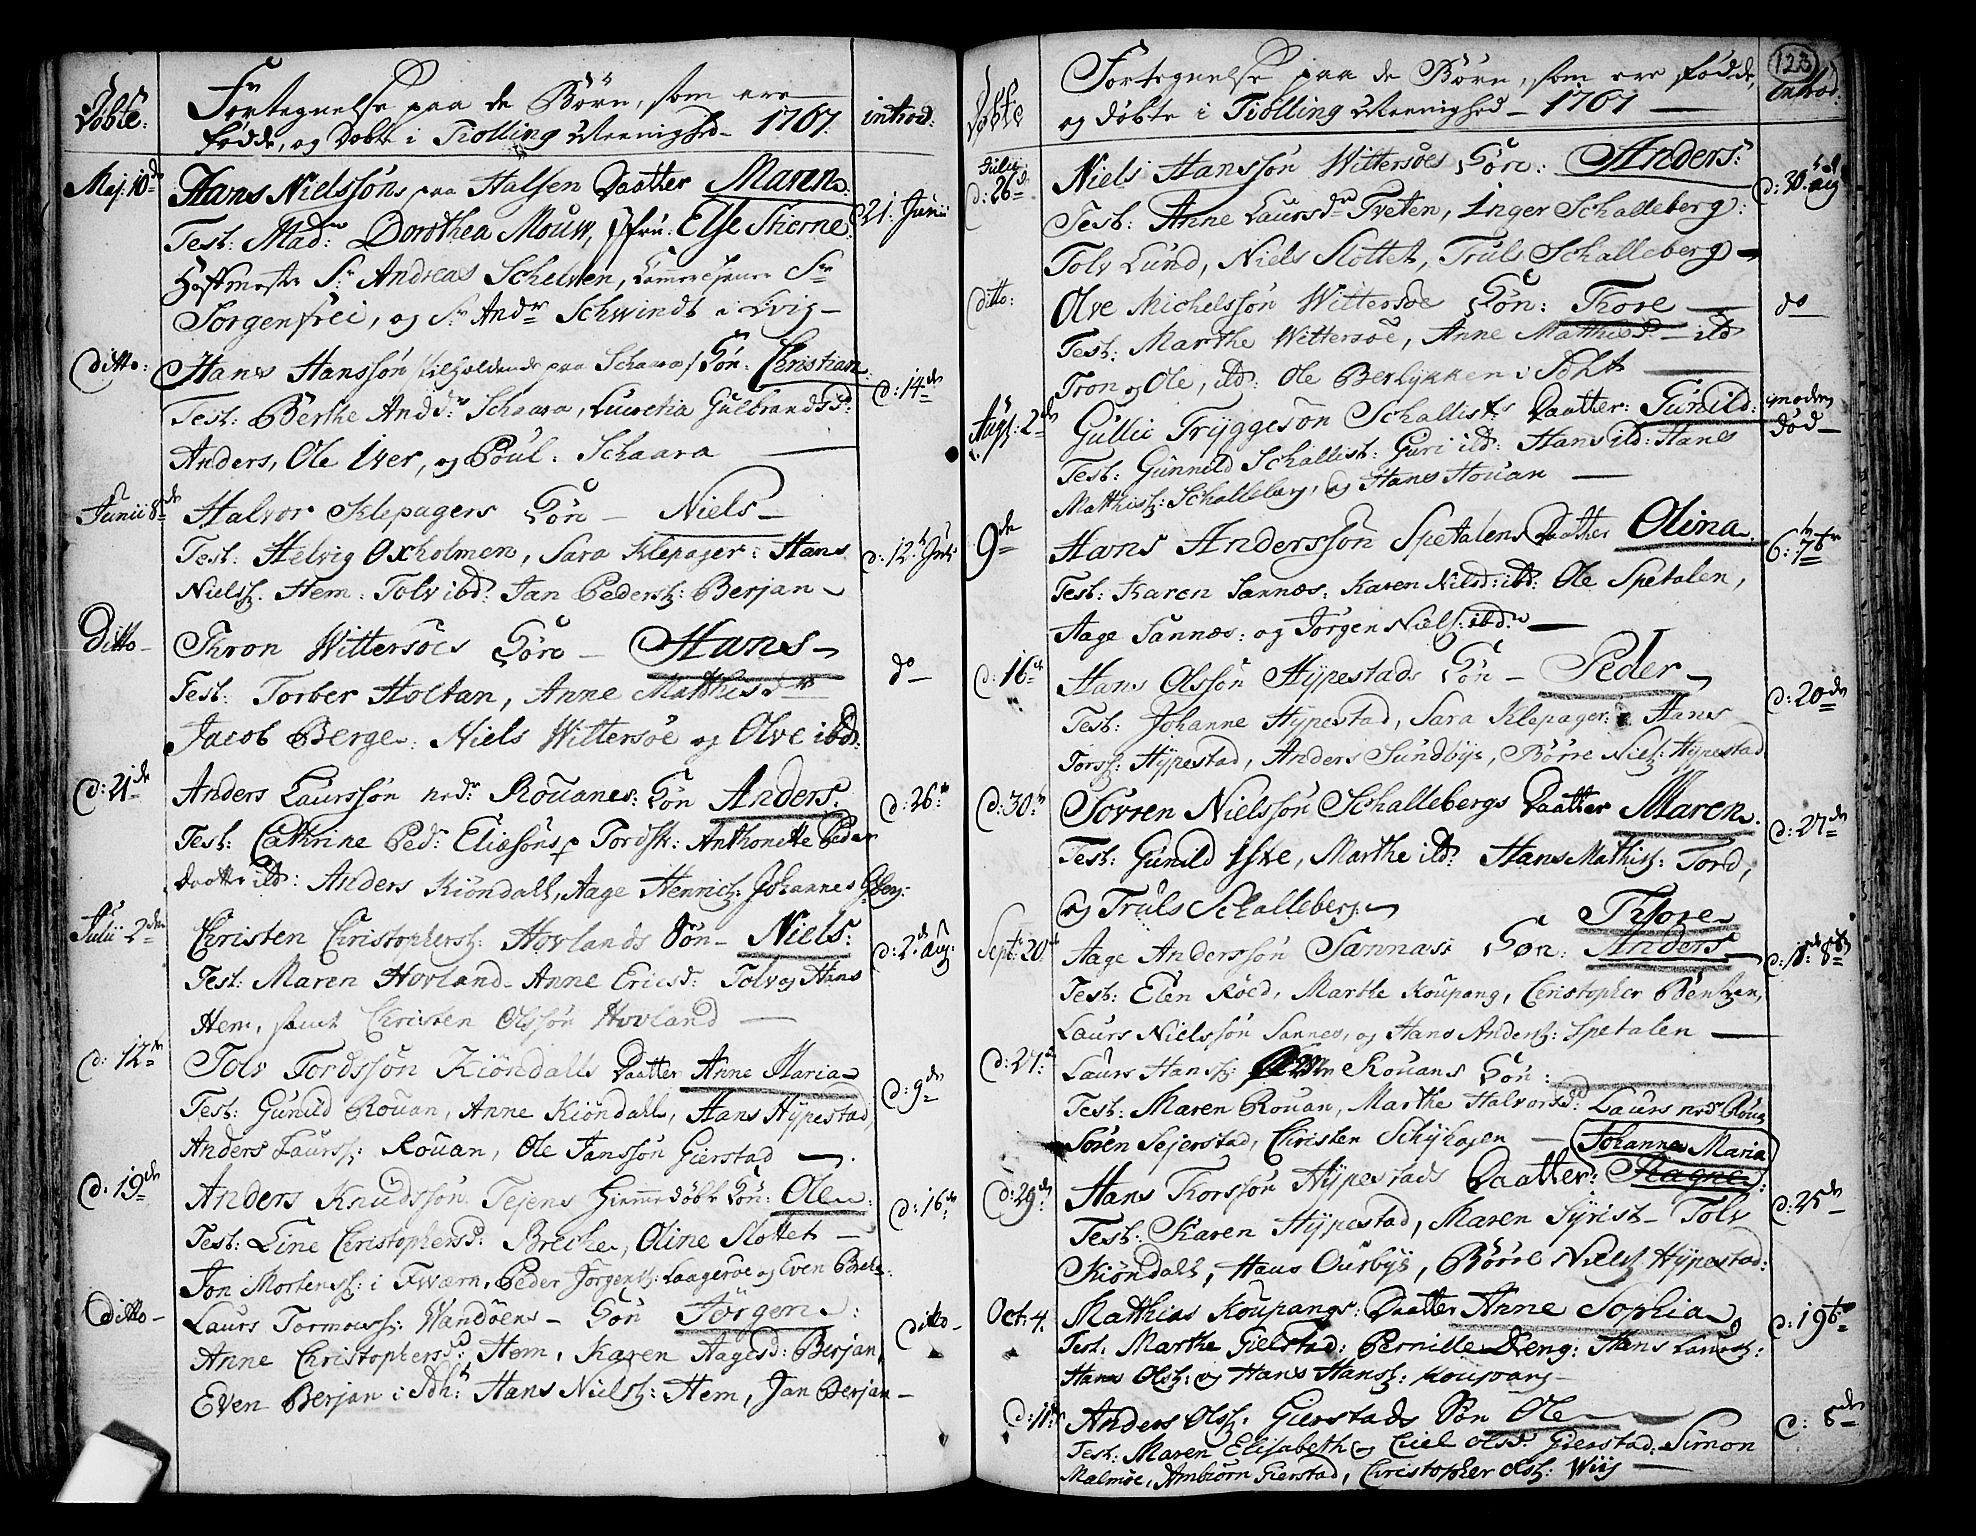 Døbte:
Fortegnelse paa de Børn, som ere
fødde, og Døbte i Tiolling Meenighed – 1767.
introd:
Maj: 10de
Hans Nielssøns paa Halsen Daatter Maren.
21: Junii
Test: Mad: Dorothea Mouw, Jfru: Else Stierne
S: Andreas Schelven, S:
Sorgenfrei, og S: And: Schwindt i Lvig –
ditto:
Hans Hanssøn tilholdende paa Schaara / Søn: Christian
d: 14de
Test: Berthe And: Schaara, Lucretia Gulbrandsd:
Anders, Ole Iver, og Poul: Schaara
Junii 8de
Halvor Klepagers Søn – Niels –
d: 12: Julii
Test: Helvig Oxholmen, Sara Klepager: Hans
Niels: Hem: Tolv ibd: Jan Peders: Berjan –
Ditto –
Thron Wittersøes Søn – Hans –
do –
Test: Torber Holtan, Anne Matthisd:
Jacob Berge: Niels Wittersøe og Olve ibd:
d: 21de
Anders Laurssøn nedr Rouanes: Søn Anders.
d: 26:
Test: Cathrine Ped: Eliesøns Tordsk: Anthonette Peder
daatter ibd: Anders Kiøndall, Aage Henrich: Johannes
Julii 2den
Christen Christophers: Hovlands Søn – Niels:
d: 2: Aug:
Test: Maren Hovland – Anne Ericsd: Tolv og Hans
Hem, samt Christen Olssøn Hovland
d: 12te
Tolv Tordssøn Kiøndalls Daatter Anne Maria
d: 9de
Test: Gunild Rouan, Anne Kiøndall, Hans Hypestad
Anders Laurs: Rouan, Ole Janssøn Gierstad
d: 19de
Anders Knudssøn Tejens Hiemmedøbt Søn: Ole
d: 16de
Test: Line Christophersd: Breche, Oline Slottet –
Jon Mortens: i Tværn, Peder Jørgens: Laagerøe og Even Brek:
Ditto –
Laurs Tormows: Wandøens – Søn Jørgen:
ditto –
Anne Christophersd: Hem, Karen Aagesd: Berjan,
Even Berjan i Sdh: Hans Niels: Hem, Jan Berjan –
123
Døbte
Fortegnelse paa de Børn, som ere fødde,
og døbte i Tiolling Meenighed – 1767 –
Introd:
Julii d: 26de
Niels Hanssøn Wittersøes Søn: Anders:
d: 30: Aug
Test: Anne Laursdr Tveten, Inger Schalleberg:
Tolv Lund, Niels Slottet, Truls Schalleberg –
ditto:
Olve Michelssøn Wittersøe Søn: Thore –
do –
Test: Marthe Wittersøe, Anne Matthiesd – ibd
Tron og Ole, ibd: Ole Berlykken i Sdh –
Aug: 2den
Gullic Tryggesøn Schallists Daatter: Gunild:
moder
død –
Test: Gunnild Schallist: Guri ibd: Hans ibd: Hans
Matthis: Schalleberg, og Hans Houan –
9de
Hans Anderssøn Spetalens Daatter Olina.
Test: Karen Sannæs: Karen Nilsd: ibd: Ole Spetalen,
Aage Sannæs: og Jørgen Niels: ibd: –
d: 16
Hans Olssøn Hypestads Søn – Peder –
d: 20de
Test: Johanne Hypestad, Sara Klepager: Hans
Tors: Hypestad, Anders Sundbye, Børre Niels: Hypestad
d: 30:
Sørren Nielssøn Schallebergs Daatter Maren.
d: 27de
Test: Gunild Iske, Marthe ibd: Hans Mathis: Tord,
og Truls Schalleberg –
Thore
Sept: 20
Aage Anderssøn Sannæss Søn: Anders
Test: Elen Røed, Marthe Koupang, Christopher Bentzen,
Laurs Nielssøn Sannes, og Hans Anders: Spetalen –
d: 27:
Laurs Hans: Rouans Søn:
Test: Maren Rouan, Marthe Halvorsd: Laurs nedr Rouan
Søren Sejerstad, Christen Schyhagen – Johanne Maria
d: 29de
Hans Thorssøn Hypestads Daatter: Ragne
d: 25de
Test: Karen Hypestad, Maren Syrist – Tolv
Kiøndall, Hans Ourbye, Børre Niels: Hypestad:
Oct: 4.
Matthias Koupangs: Daatter Anne Sophia
d: 19
Test: Marthe Gielstad: Pernille Eng: Hans Laurs:
Hans Ols: og Hans Hans: Koupang –
d: 11te
Anders Ols: Gierstads Søn Ole
d: 8de
Test: Maren Elisabeth og Ciel Olsd: Gierstad: Simon
Malmøe, Ambiørn Gierstad, Christopher Ols: Wiij –